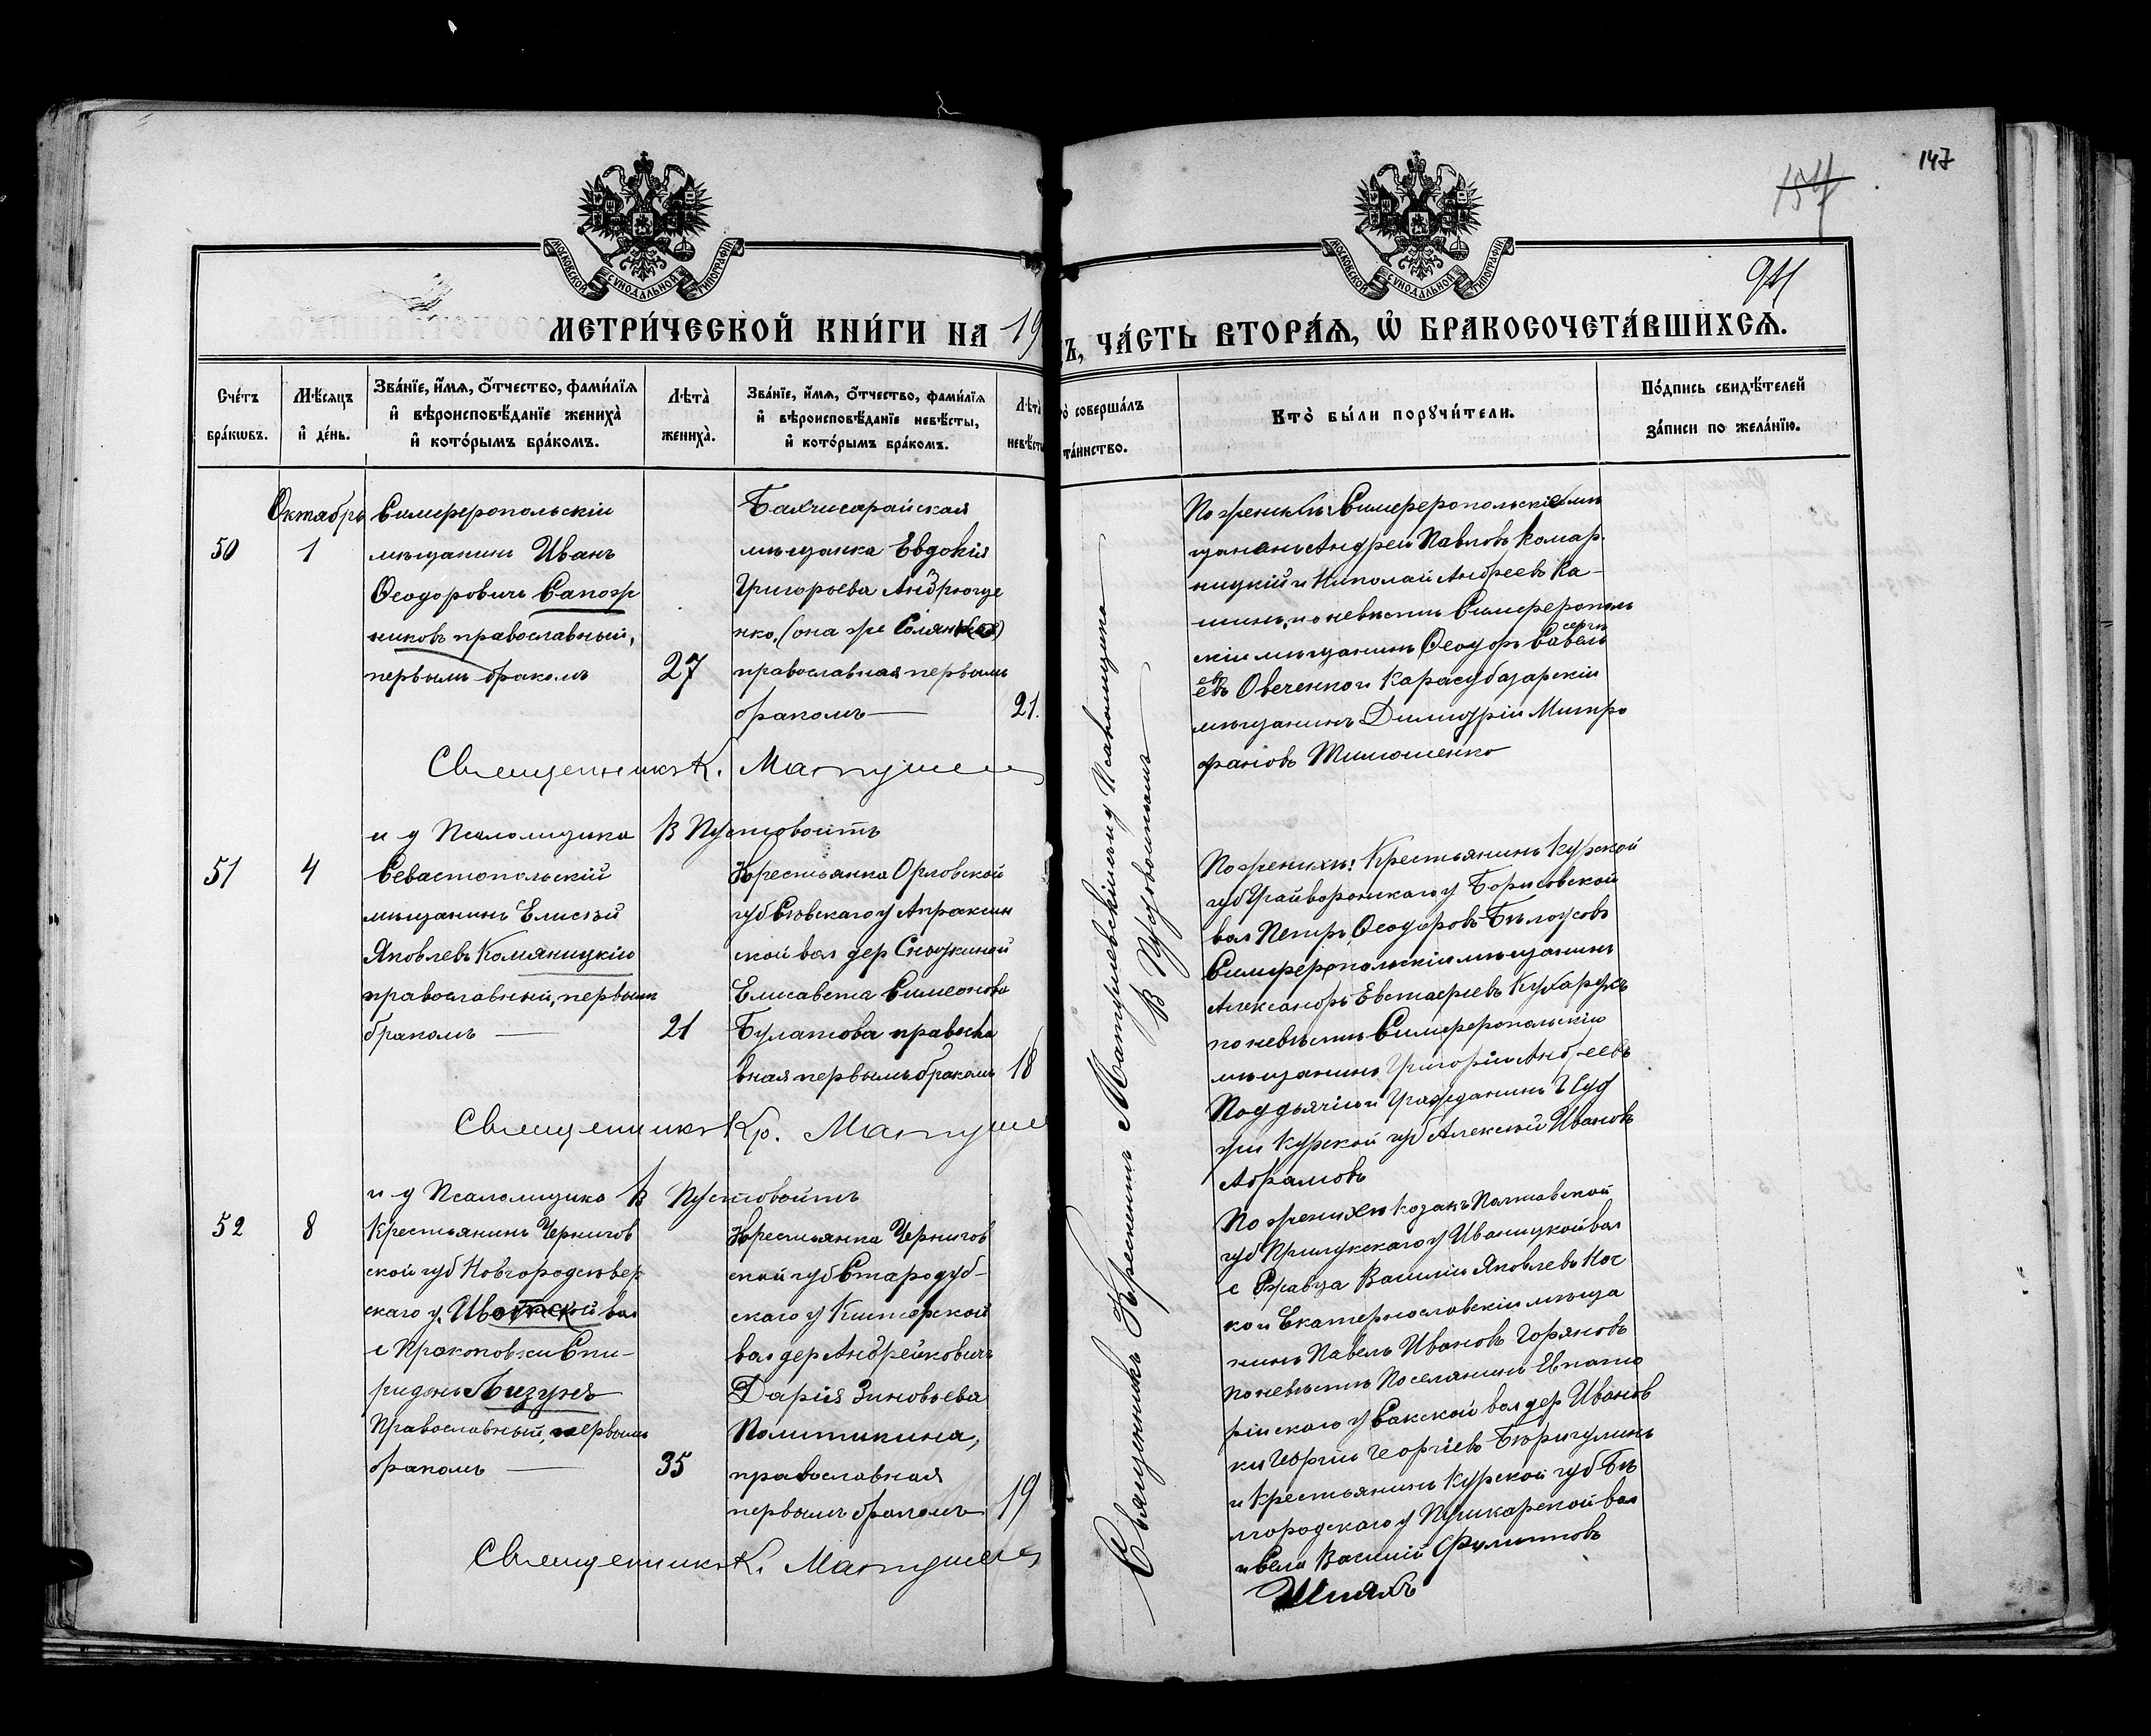 147
154
94
МОСКОВСКОЙ СѴНОДАЛЬНОЙ ТИПОГРАФІИ
МОСКОВСКОЙ СѴНОДАЛЬНОЙ ТИПОГРАФІИ
МЕТРИ́ЧЕСКОЙ КНИ́ГИ НА 19
Ъ, ЧА́СТЬ ВТОРА́Ѧ, Ѡ҆ БРАКОСОЧЕТА́ВШИХСѦ.
Сче́тъ бра́кѡвъ.
Мѣ́сяцъ и҆ де́нь.
Зва́нїе, и҆́мѧ, Ѻ҆́тчество, фами́лїѧ
и҆ вѣроисповѣ́данїе жениха̀
и҆ кото́рымъ бра́комъ.
Лѣта̀ жениха̀.
Зва́нїе, и҆́мѧ, Ѻ҆́тчество, фами́лїѧ
и҆ вѣроисповѣ́данїе невѣ́сты,
и҆ кото́рымъ бра́комъ.
Лѣта̀ невѣ́сты
то̀ соверша́лъ
та́инство.
Кто̀ бы́ли порꙋчи́тели.
По́дпись свидѣ́телей
за́писи по жела́нїю.
Октябрь
50
1
Симферопольскій
мѣщанинъ Иванъ
Ѳеодоровичъ Сапож
никовъ православный,
первымъ бракомъ
27
Бахчисарайская
мѣщанка Евдокія
Григорьева Андрюще
нко, (она же Солян
православная первымъ
бракомъ
21.
По женихѣ: Симферопольскіе мѣ
щане Андрей Павловъ Комар
ницкій и Николай Андреевъ Ка-
шинъ, по невѣстѣ Симферополь
скій мѣщанинъ Ѳеодоръ Савель
евъ Овченко и Карасубазарскій
мѣщанинъ Димитрій Митро
фановъ Тимошенко
Священникъ К. Матушев
и д Псаломщика В Пустовойтъ
51
4
Севастопольскій
мѣщанинъ Елисей
Яковлевъ Комяницкій
православный, первымъ
бракомъ
21
Крестьянка Орловской
губ Сѣвскаго у Апраксин
ской вол дер
Елисавета Симеонова
Булатова правосла
вная первымъ бракомъ
18
По женихѣ: Крестьянинъ Курской
губ Грайворонскаго у Борисовской
вол Петръ Ѳеодоровъ Бѣлоусовъ
Симферопольскій мѣщанинъ
Александръ Евстафіевъ Кухарукъ
по невѣстѣ Симферопольскій
мѣщанинъ Григорій Андреевъ
Поддьячій и Гражданинъ г Суд
жи Курской губ Алексѣй Ивановъ
Абрамовъ
Священникъ Кр. Матуше
и д Псаломщика В Пустовойтъ
52
8
Крестьянинъ Чернигов
ской губ Новгородсѣвер
скаго у. Ивотской вол
с Прокоповки Спи-
ридонъ Лизунъ
Православный, первымъ
бракомъ
35
Крестьянка Чернигов
ской губ Стародуб-
скаго у Киторской
вол дер Андрейковичъ
Дарія Зиновьева
Политикина,
православная
первымъ бракомъ
19
По женихѣ козакъ Полтавской
губ Прилукскаго у Иваницкой вол
с Ржавца Василій Яковлевъ Кос
ко и Екатеринославскій мѣща
нинъ Павелъ Ивановъ Горяновъ
по невѣстѣ Поселянинъ Евпато
рійскаго у Сакской вол дер Иванов
ки Георгій Георгіевъ
и Крестьянинъ Курской губ Бѣ
лгородскаго у Пушкарской вол
и села Василій Филипповъ
Шляхъ
Священникъ К. Матушев
Священникъ Крескентъ Матушевскій и д Псаломщика
В Пустовойтъ